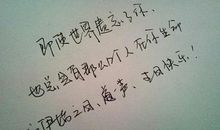 即使世界遗忘了你、
也总会有那么个人在你生命
里伊始之日，道一声，生日快乐！